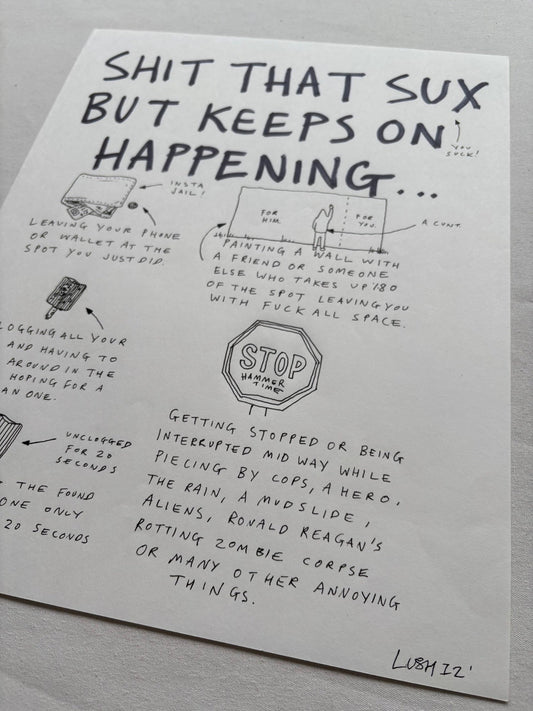 SHIT THAT SUX
BUT KEEPS ON
HAPPENING...
YOU
SUCK!
INSTA
JAIL!
LEAVING YOUR PHONE
OR WALLET AT THE
SPOT YOU JUST DID.
FOR
HIM.
FOR
YOU.
A CUNT.
PAINTING A WALL WITH
A FRIEND OR SOMEONE
ELSE WHO TAKES UP %80
OF THE SPOT LEAVING YOU
WITH FUCK ALL SPACE.
LOGGING ALL YOUR
AND HAVING TO
AROUND IN THE
HOPING FOR A
AN ONE.
STOP
HAMMER
TIME
UNCLOGGED
FOR 20
SECONDS
THE FOUND
ONE ONLY
20 SECONDS
GETTING STOPPED OR BEING
INTERRUPTED MID WAY WHILE
PIECING BY COPS, A HERO,
THE RAIN, A MUDSLIDE,
ALIENS, RONALD REAGAN'S
ROTTING ZOMBIE CORPSE
OR MANY OTHER ANNOYING
THINGS.
LUSH 12'